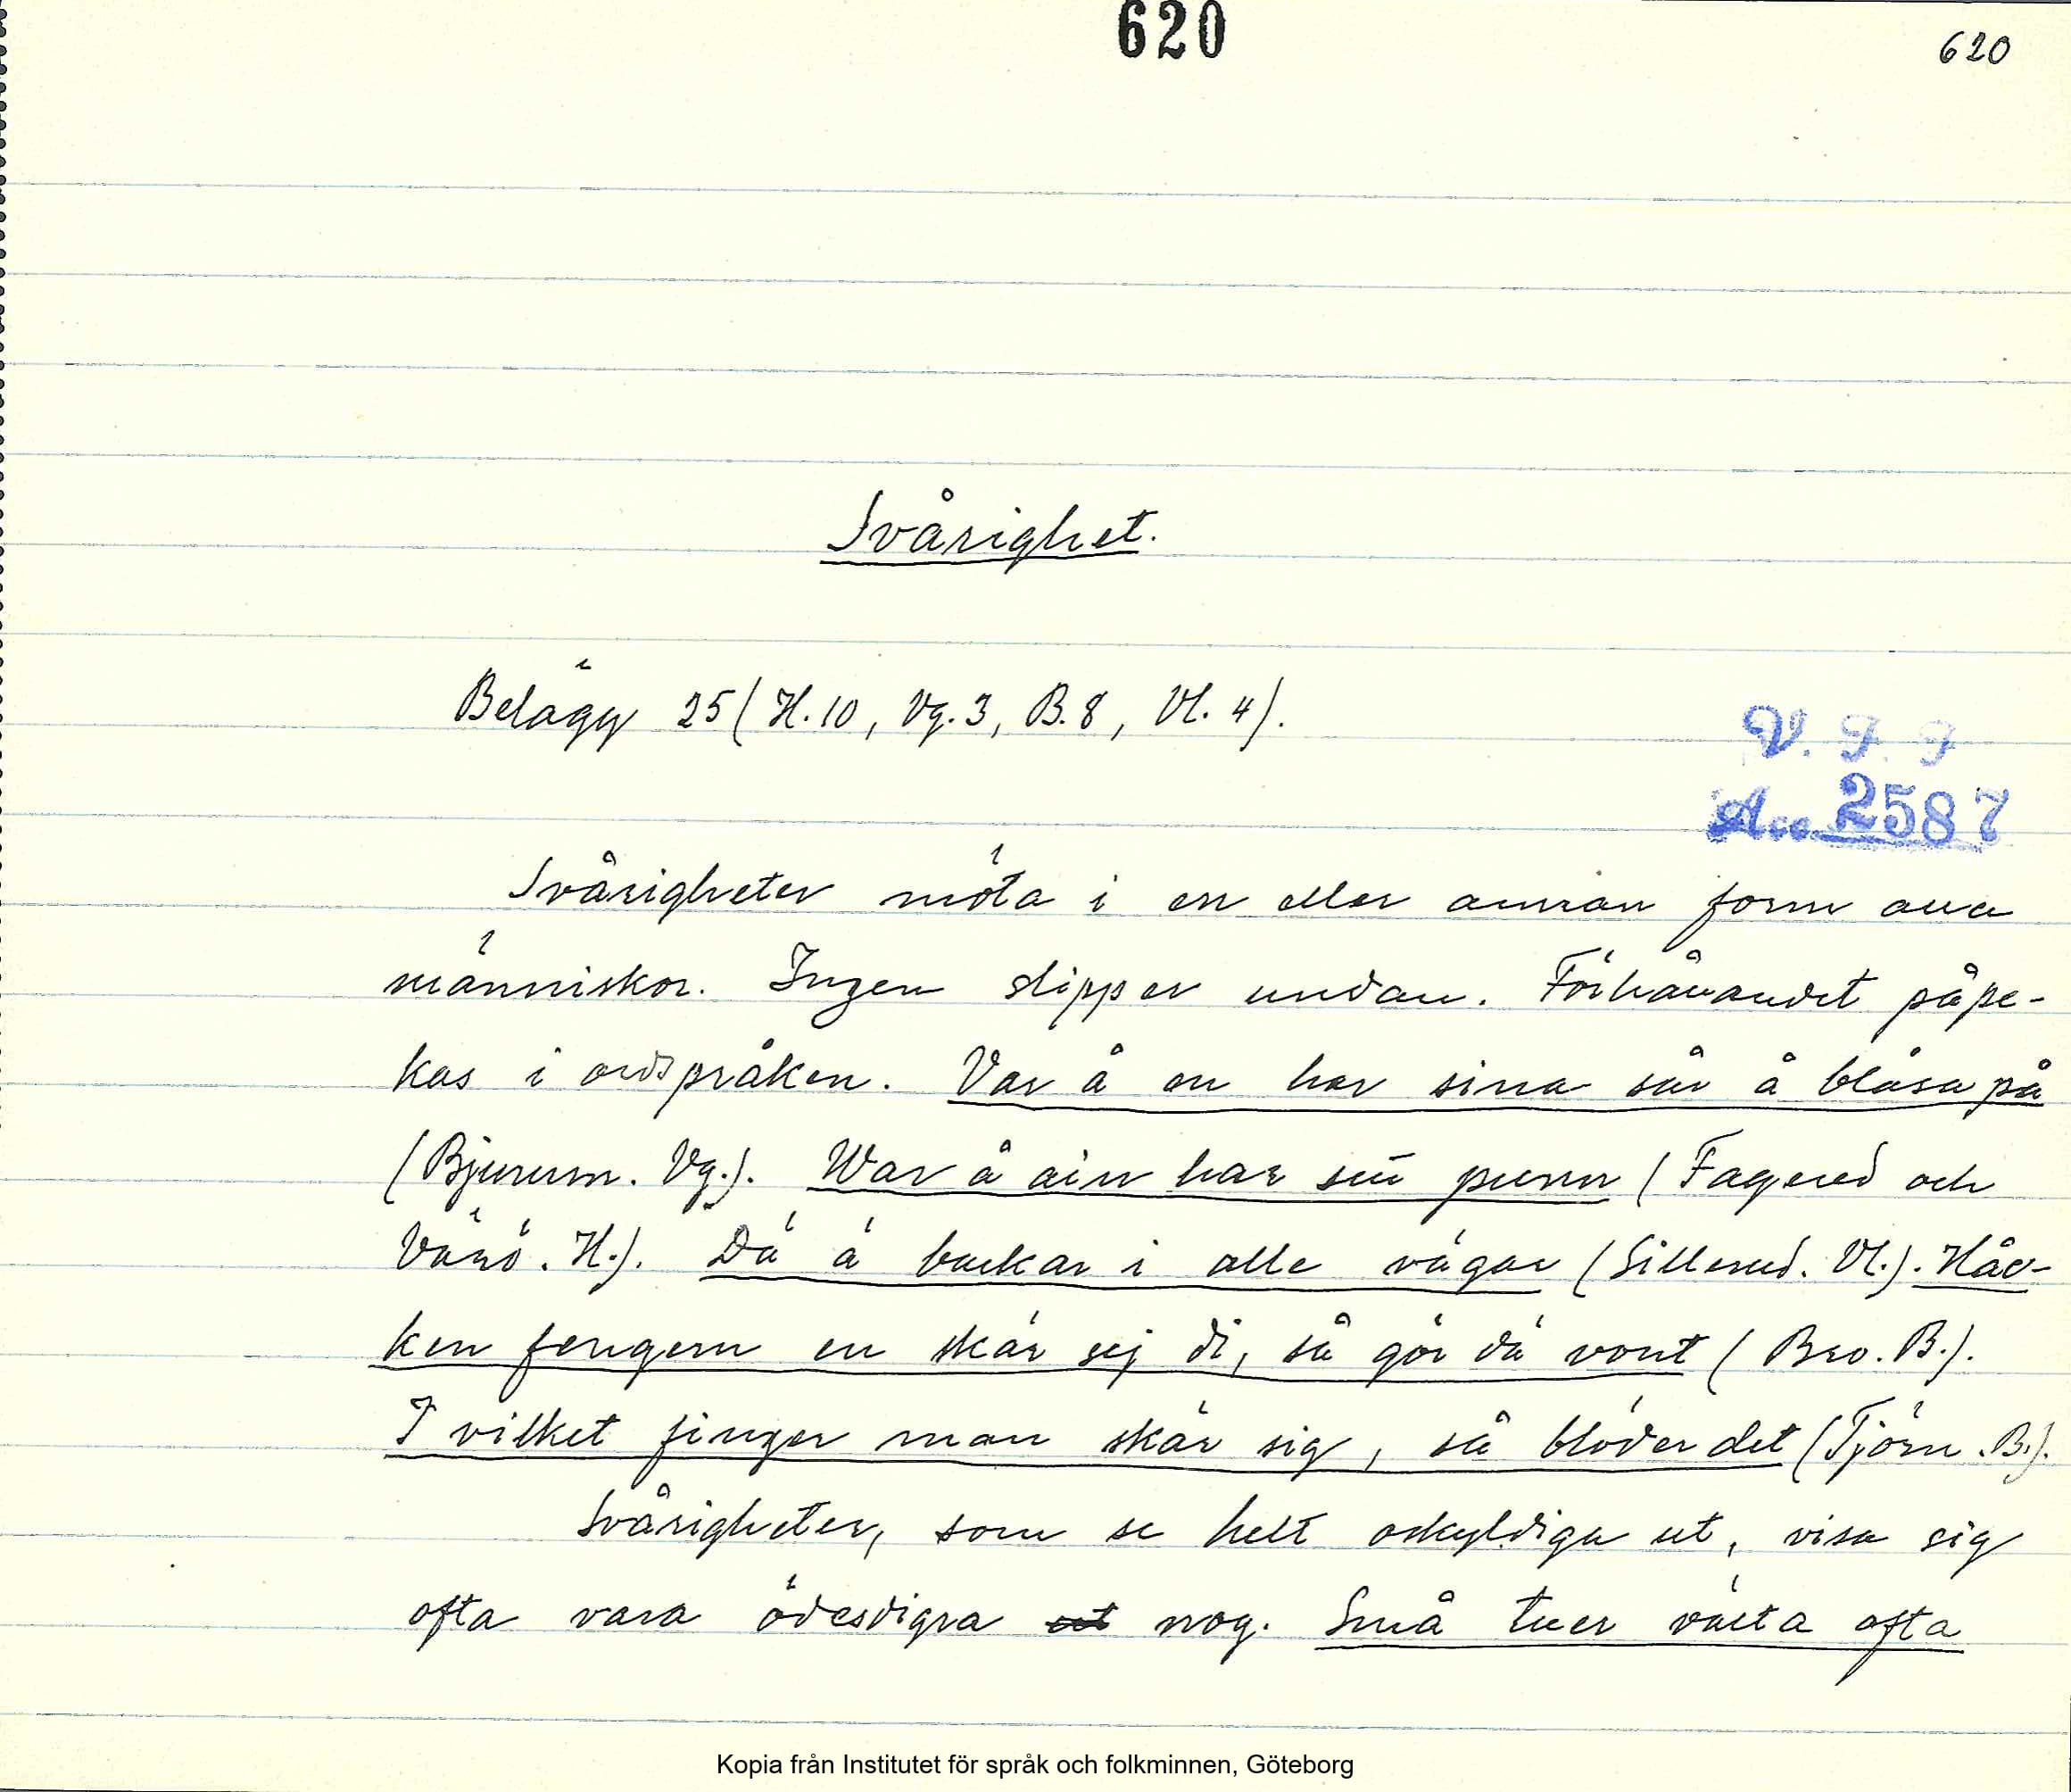 620
620
Svårighet.
Belägg 25 (H. 10, Vg. 3, B. 8, Vl. 4).
V. F. F
Acc. 2587
Svårigheter möta i en eller annan form alla
människor. Ingen slipper undan. Förhållandet påpe-
kas i ordspråken. Var å en har sina sår å blåsa på
(Bjurum. Vg.). War å ain har sin punn (Fagered och
Värö. H.). Dä ä backar i alle vägar (Sillerud. Vl.). Håc-
ken fengern en skär sej di, så gör dä vont (Bro. B.).
I vilket finger man skär sig, så blöder det (Tjörn. B.).
Svårigheter, som se helt oskyldiga ut, visa sig
ofta vara ödesdigra nog. Små tuer välta ofta
Kopia från Institutet för språk och folkminnen, Göteborg